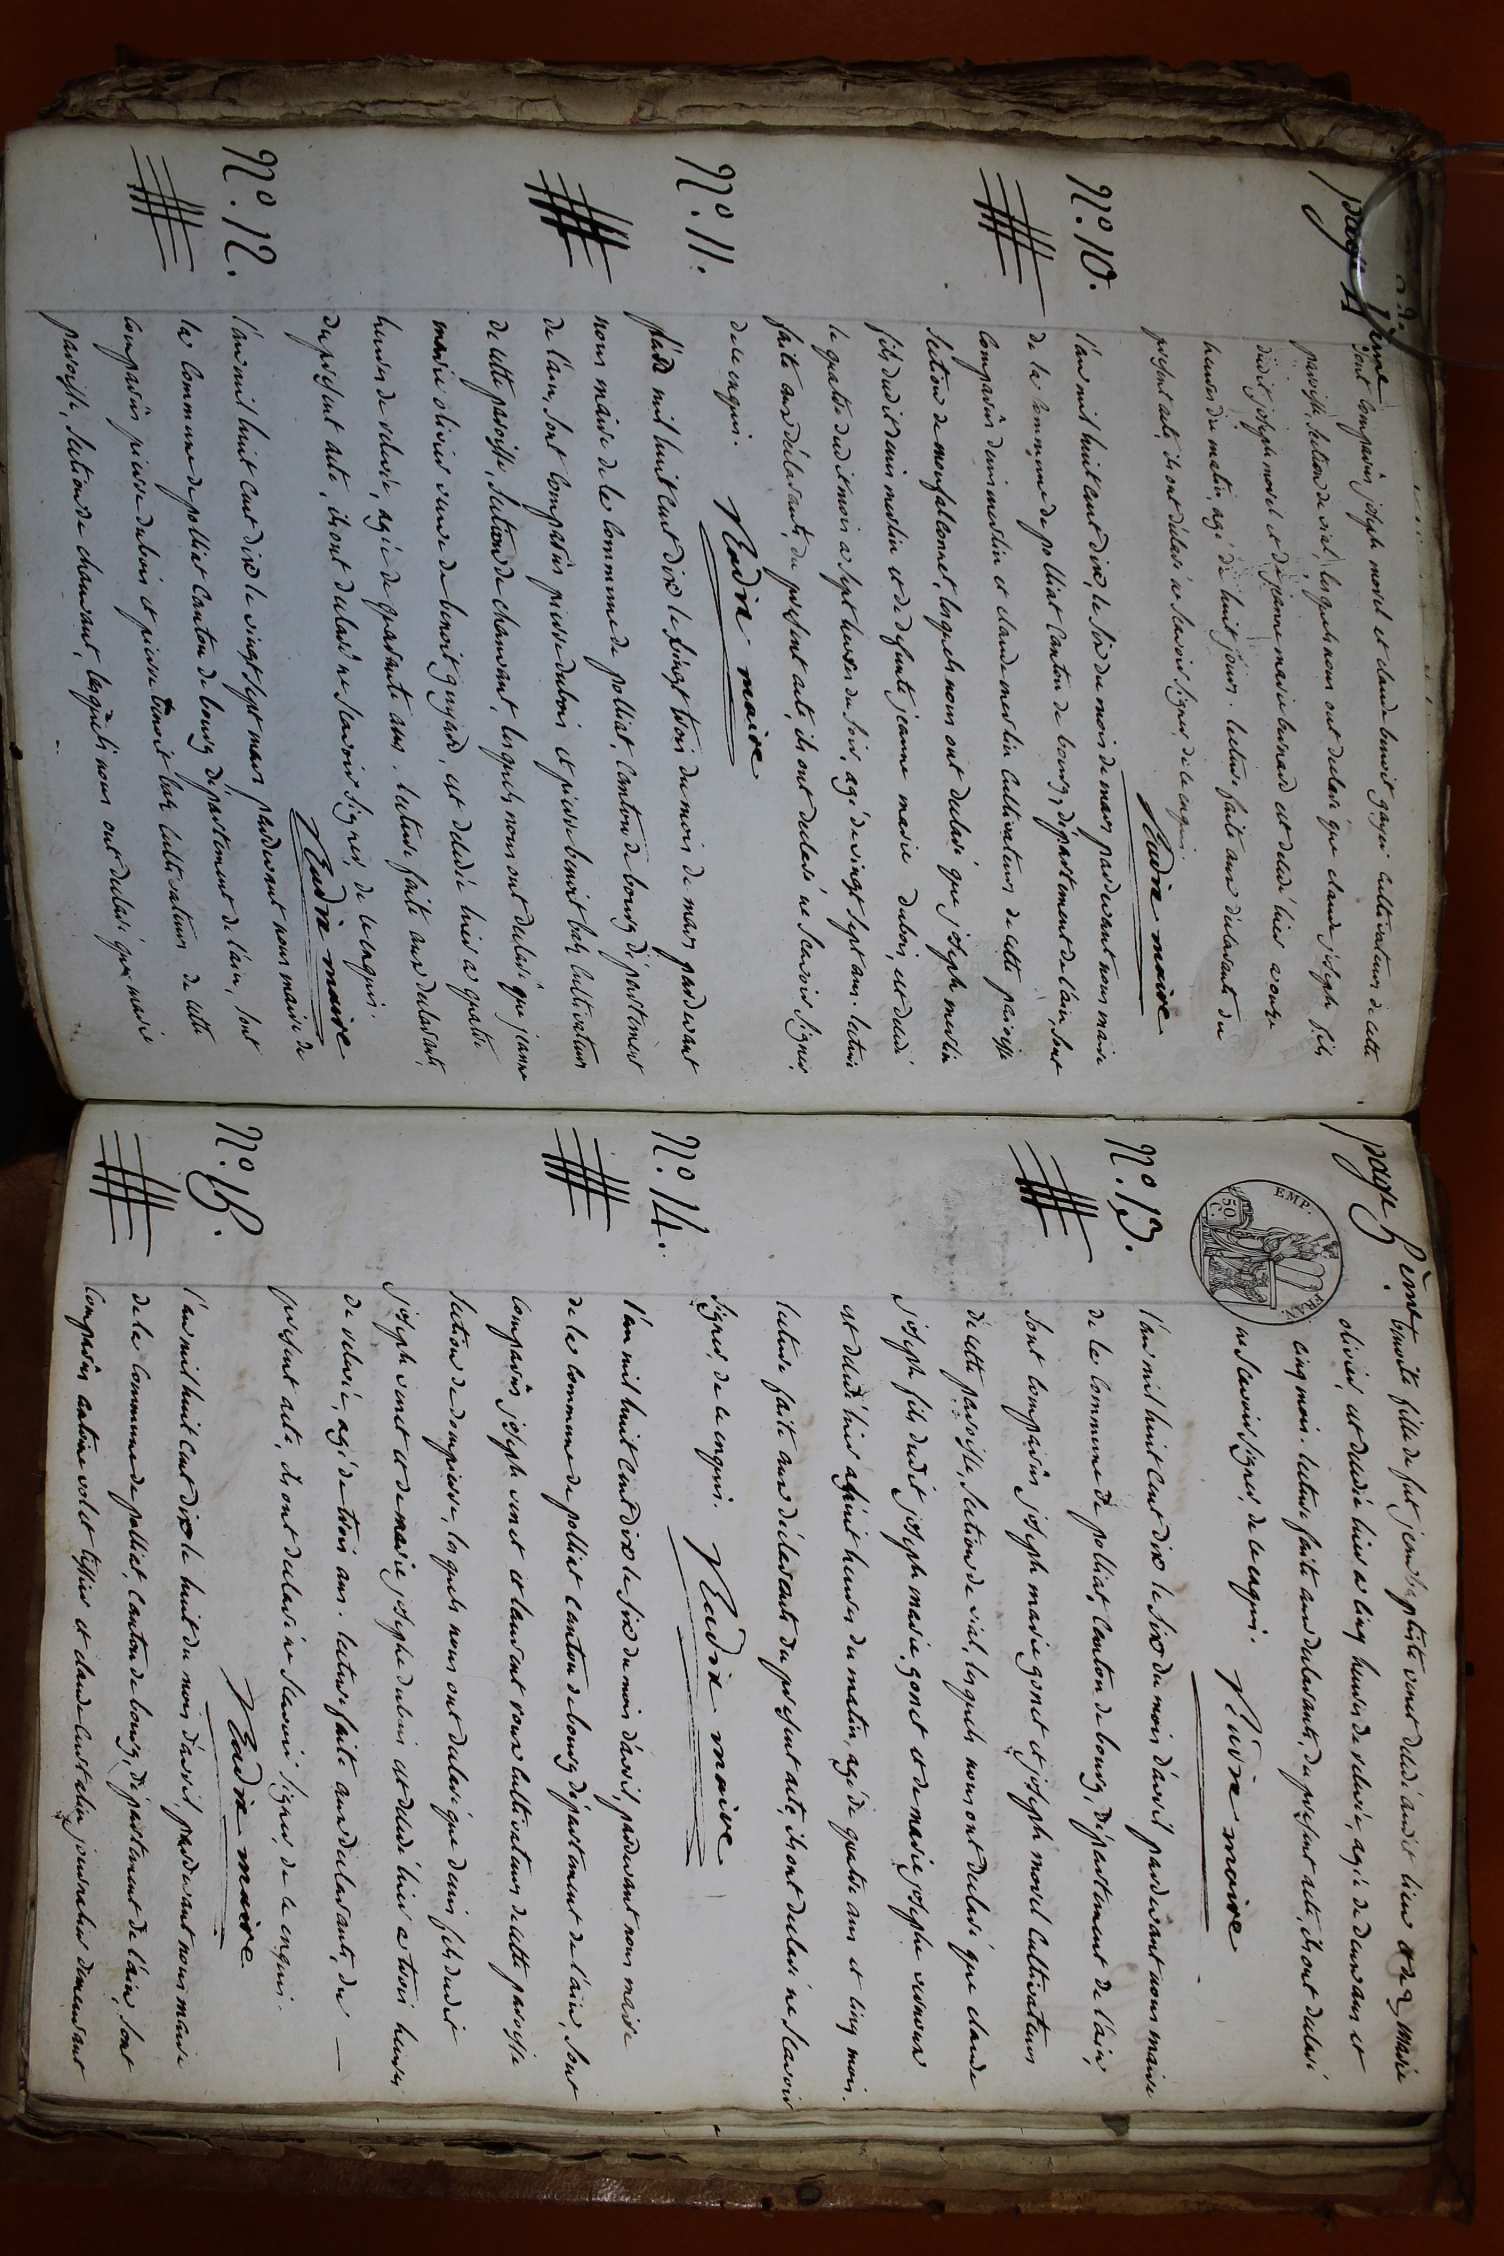 page 4 eme
sont comparûs joseph morel et claude benoit gayri cultivateurs de cette
paroisse, section de vial, lesquels nous ont déclaré que claude joseph fils
dudit joseph morel et de jeanne marieburnard est décédé hier a onze
heures du matin agé de huit jours. lecture faite aux déclarants du
présent acte, ils ont déclaré ne scavoir signer, de ce enquis.
maire
N°. 10.
l'an mil huit cent dix, le six du mois de mars pardevant nous maire
de la commune de polliat canton de bourg, département de l'ain, sont
comparûs denis merlin et claude merlin cultivateurs de cette paroisse
section de monfalconet, lesquels nous ont déclaré que joseph merlin
fils dudit denis merlin et de defunte jeanne marie dubois, est décédé
le quatre dudit mois a sept heures du soir, agé de vingt sept ans. lecture
faite aux déclarants, du présent acte, ils ont déclaré ne scavoir signer,
de ce enquis. maire
N°. 11.
l'an mil huit cent dix le vingt trois du mois de mars pardevant
nous maire de la commune de polliat, canton de bourg département
de l'ain, sont comparûs pierre dubois et pierre benoit bah cultivateurs
de cette paroisse, section de chanvant, lesquels nous ont déclaré que jeanne
marie olivier veuve de benoit guyard, est décédée hier a quatre
heures de relevée, agée de quarante ans. lecture faite aux déclarants,
du présent acte, ils ont déclaré ne scavoir signer, de ce enquis.
maire
N°. 12.
l'an mil huit cent dix le vingt sept mars pardevant nous maire de
la commune de polliat canton de bourg département de l'ain, sont
comparûs pierre dubois et pierre benoit bah cultivateurs de cette
paroisse, section de chanvant, lesquels nous ont déclaré que marie
page 5 eme
benoite fille de fut jean baptiste venet décédé audit lieu et de marie
olivier, est décédée hier a cinq heures de relevée, agée de deux ans et
cinq mois. lecture faite aux déclarants, du présent acte, ils ont déclaré
ne scavoir signer, de ce enquis. maire
EMP. FRAN.
50 C.
N°. 13.
l'an mil huit cent dix le six du mois d'avril pardevant nous maire
de la commune de polliat, canton de bourg, département de l'ain,
sont comparûs joseph marie gonet et joseph morel cultivateurs
de cette paroisse, section de vial, lesquels nous ont déclaré que claude
joseph fils dudit joseph marie gonet et de marie josephe
est décédé hier a huit heures du matin, agé de quatre ans et cinq mois.
lecture faite aux déclarants du présent acte, ils ont déclaré ne scavoir
signer, de ce enquis. maire
N°. 14.
l'an mil huit cent dix le six du mois d'avril, pardevant nous maire
de la commune de polliat canton de bourg département de l'ain, sont
comparûs joseph venet et laurent roux cultivateurs de cette paroisse
section de dompierre, lesquels nous ont déclaré que denis fils dudit
joseph venet et de marie josephe dubois est décédé hier a trois heures
de relevée, agé de trois ans. lecture faite aux déclarants, du
présent acte, ils ont déclaré ne scavoir signer, de ce enquis.
maire
N°. 15.
l'an mil huit cent dix le huit du mois d'avril, pardevant nous maire
de la commune de polliat, canton de bourg, département de l'ain, sont
comparûs antoine volet tissier et claude journalier demeurant